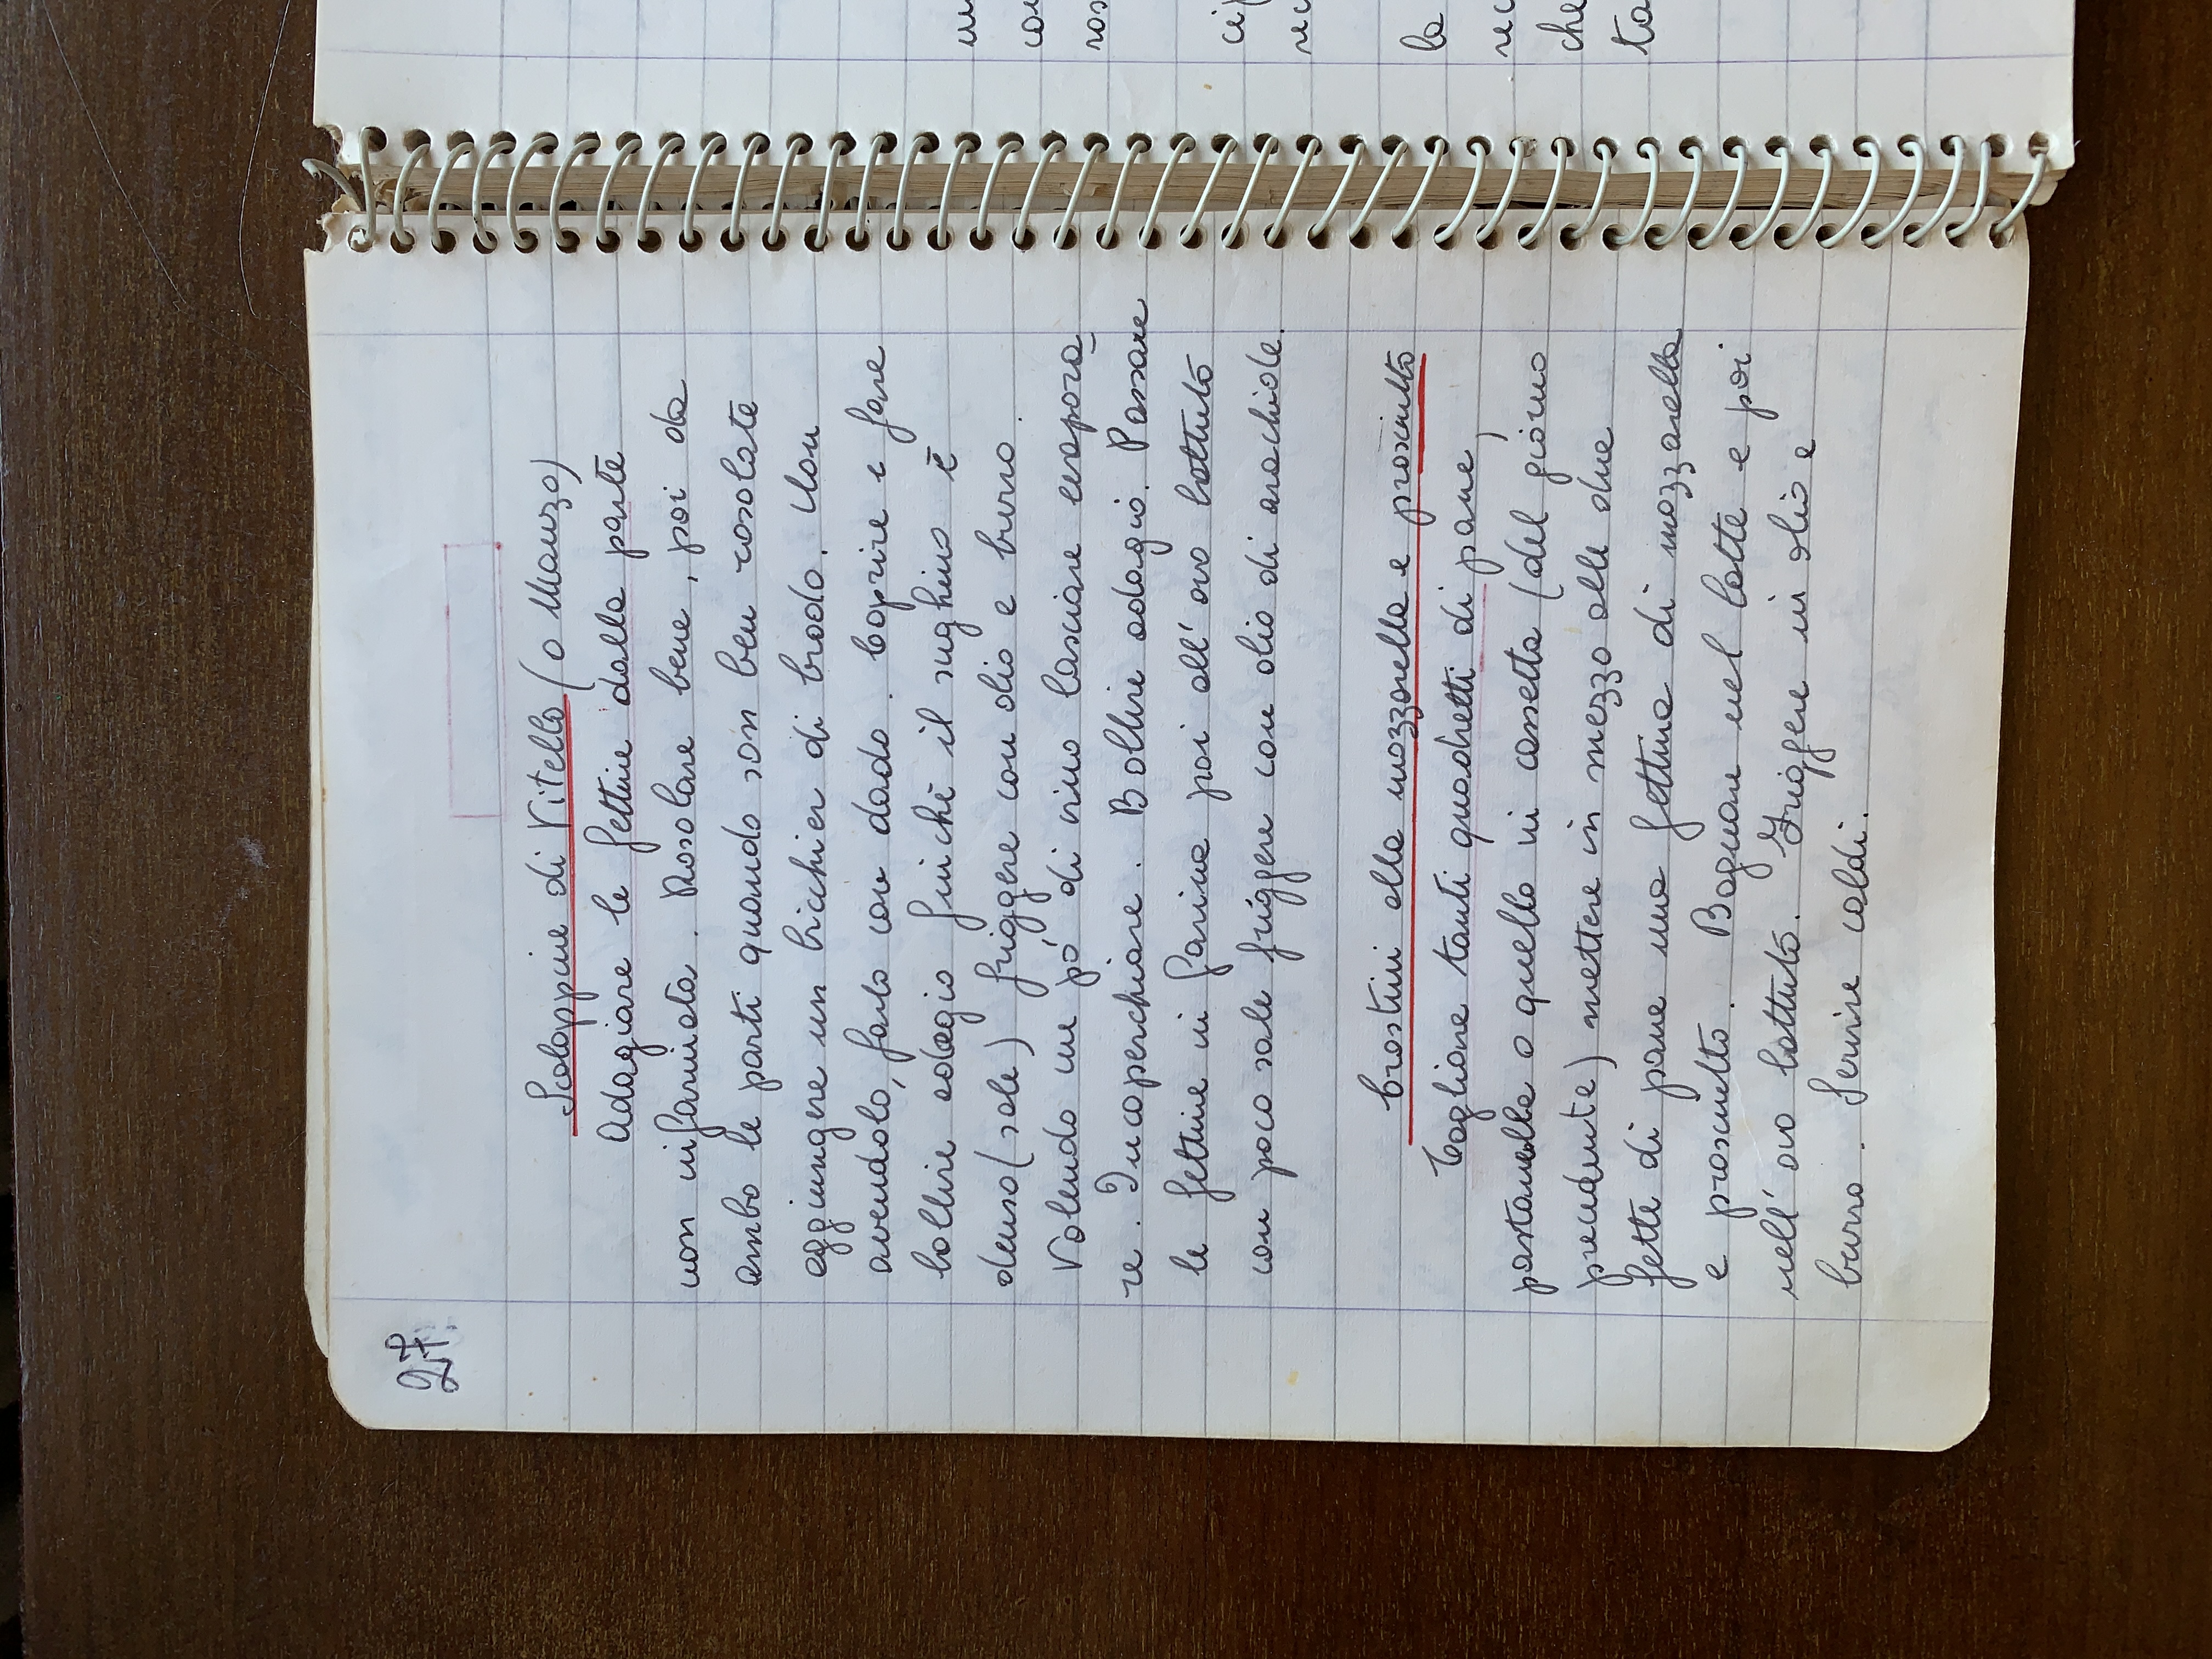 27.
Scaloppine di Vitello (o Manzo)
Adagiare le fettine dalla parte
non infarinata. Rosolare bene, poi da
ambo le parti quando son ben rosolate
aggiungere un bicchier di brodo. Non
avendolo, farlo con dado. Coprire e fare
bollire adagio finchè il sughino è
denso (sale) friggere con olio e burro.
Volendo un pò di vino lasciare evapora_
re. Incoperchiare. Bollire adagio. Passare
le fettine in farina poi all'ovo battuto
con poco sale friggere con olio di arachide.
Crostini alla mozzarella e prosciutto
Tagliare tanti quadretti di pane,
o quello in cassetta (del giorno
precedente) mettere in mezzo alle due
fette di pane una fettina di mozzarella
e prosciutto. Bagnare nel latte e poi
nell'ovo battuto. Friggere in olio e
burro. Servire caldi.
la
che